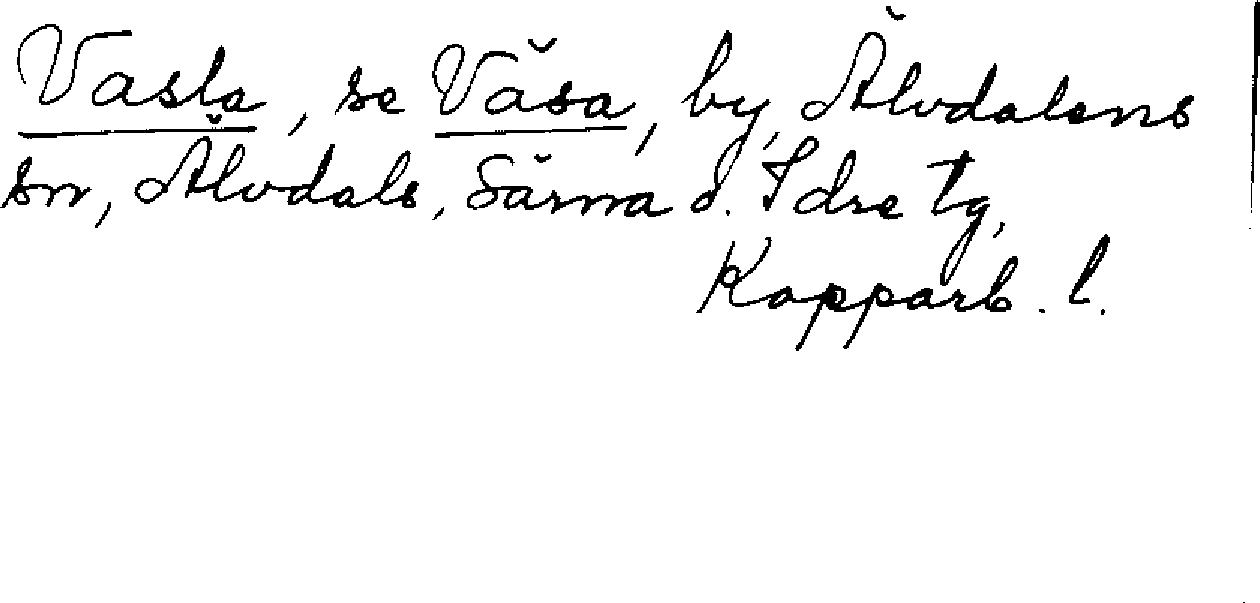 Vasla, se Väsa, by, Älvdalens
sn, Älvdals, Särna o. Idre tg,
Kopparb. l.